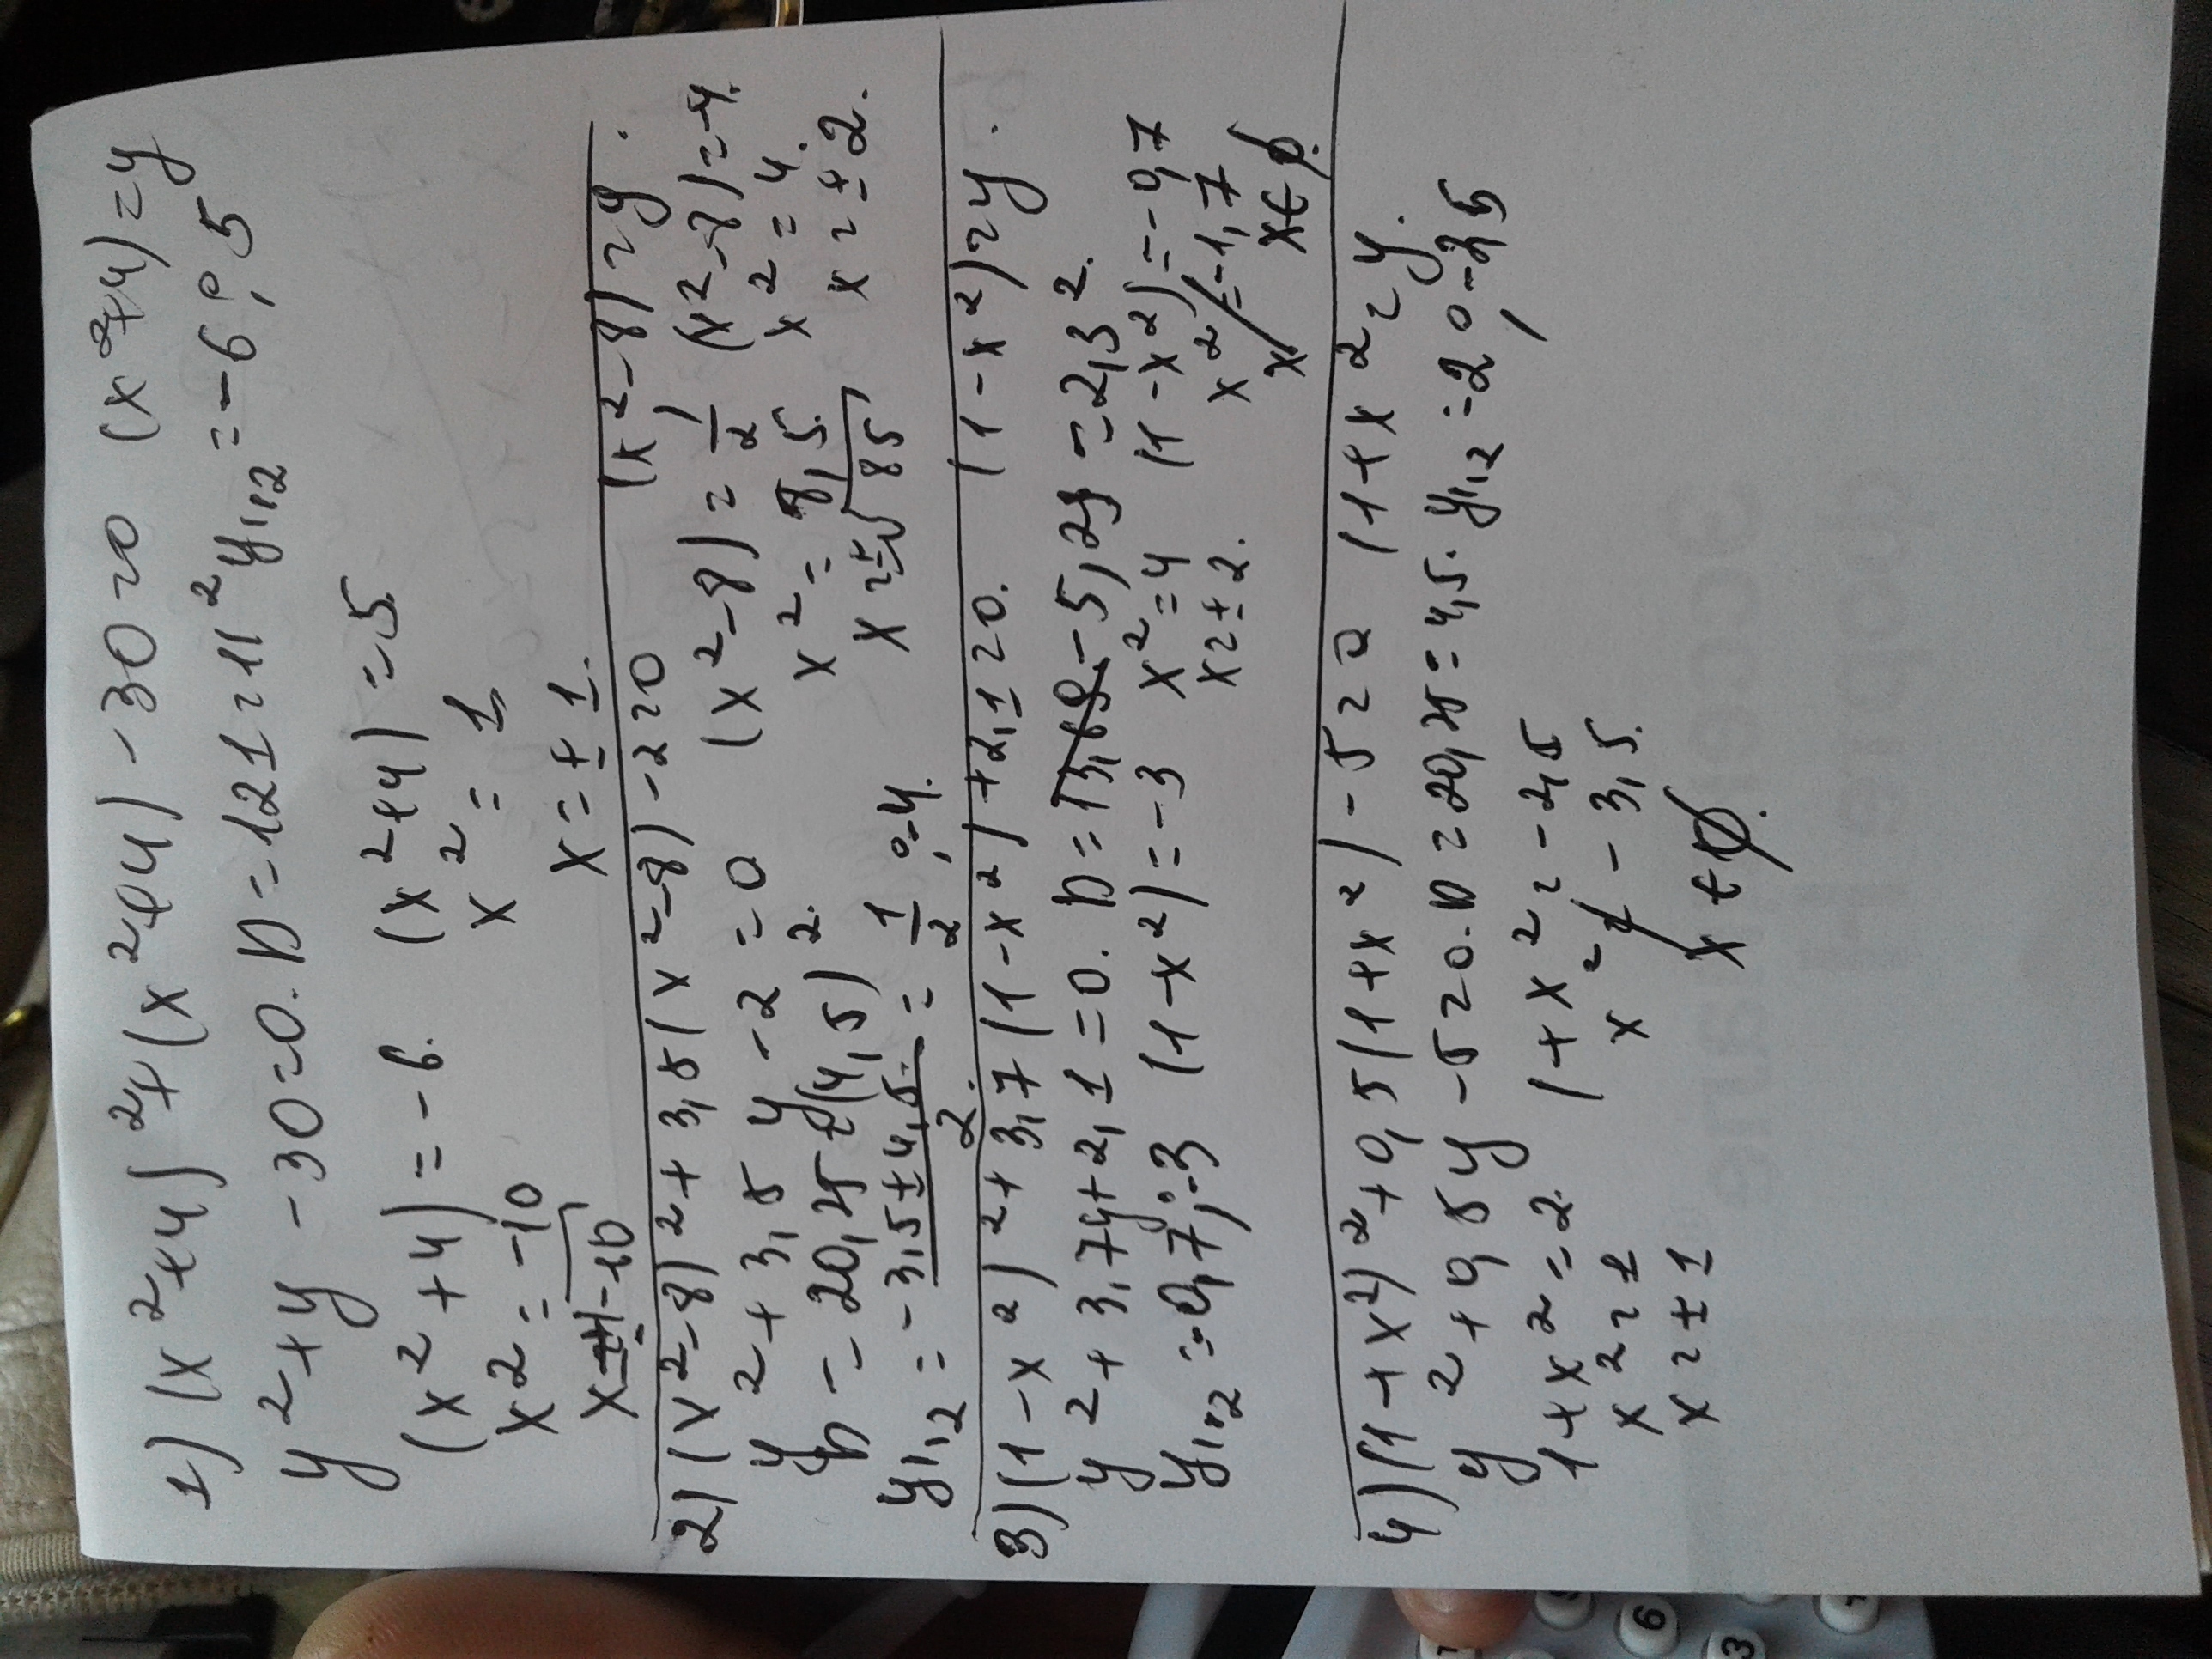 1) (x²+4)²+(x²+4)-30=0 (x²+4)=y
y²+y-30=0. D=121=11² y₁,₂=-6; 5
(x²+4)=-6. (x²+4)=5.
x²=-10 x²=1
x=±1.
2) (x²-8)²+3,5(x²-8)-2=0 (x²-8)=y.
y²+3,5y-2=0 (x²-8)=1/2 (x²-8)=-4.
D=20,25=(4,5)². x²=8,5. x²=4.
y₁,₂=-3,5±4,5/2.=1/2;-4. x=±√8,5 x=±2.
3) (1-x²)²+3,7(1-x²)+2,1=0. (1-x²)=y.
y²+3,7y+2,1=0. D=13,69-5,29=2,3².
y₁,₂=-0,7;-3 (1-x²)=-3 x²=4 (1-x²)=-0,7
x=±2. x²=-1,7
x∈∅.
4) (1+x²)²+0,5(1+x²)-5=0 1+x²=y.
y²+0,5y-5=0. D=20,25=4,5. y₁,₂=2;-2,5
1+x²=2. 1+x²=-2,5
x²=1 x²≠-3,5.
x=±1 x∈∅.